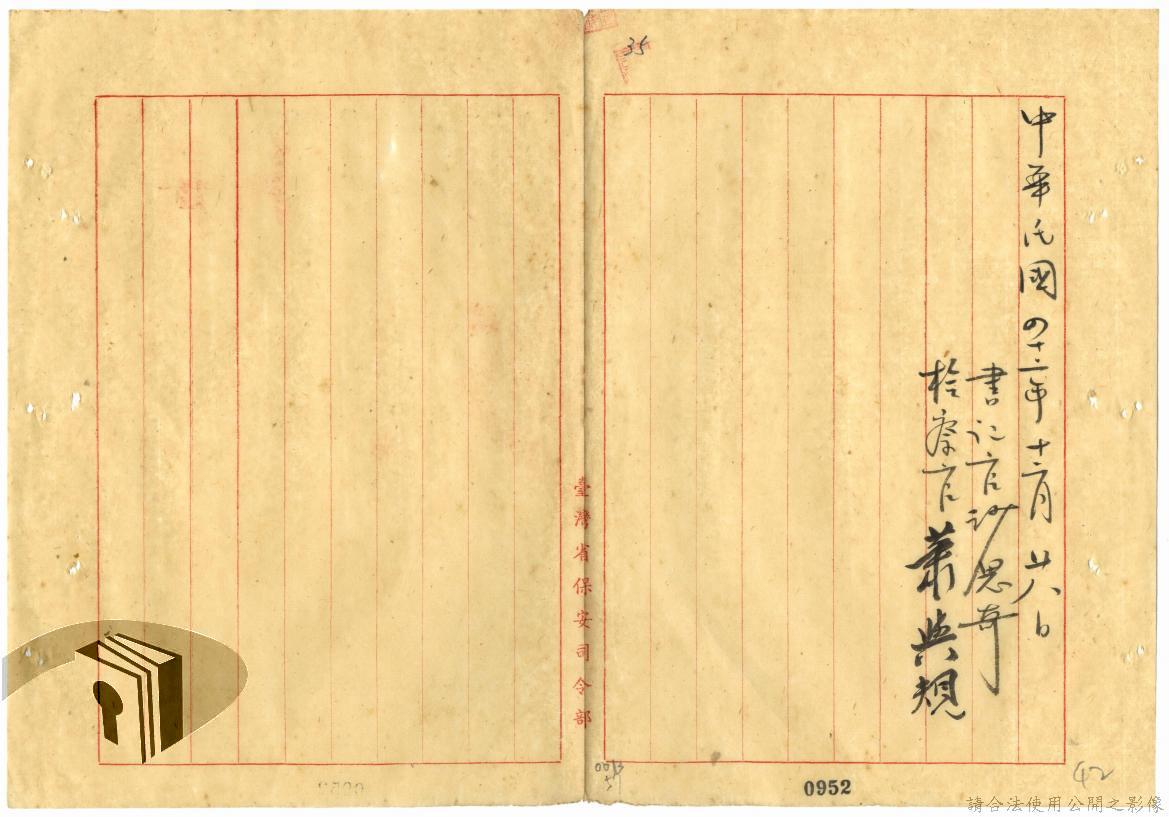 35
中華民國四十二年十二月廿八日
書記官
檢察官蕭與規
臺灣省保安司令部
0952
42
請合法使用公開之影像